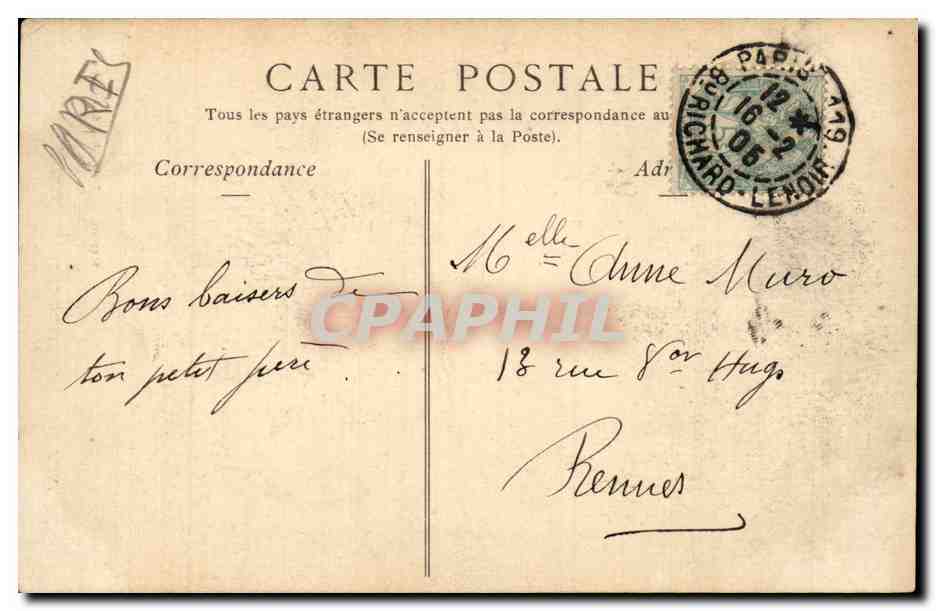 CARTE POSTALE
Tous les pays étrangers n'acceptent pas la correspondance au
(Se renseigner à la Poste).
Correspondance
Adr
PARIS 119
Bd RICHARD-LENOIR
12
16 - 2
05
Bons baisers de
ton petit père
Melle Anne Muro
13 rue Vor Hugo
Rennes
CPAPHIL